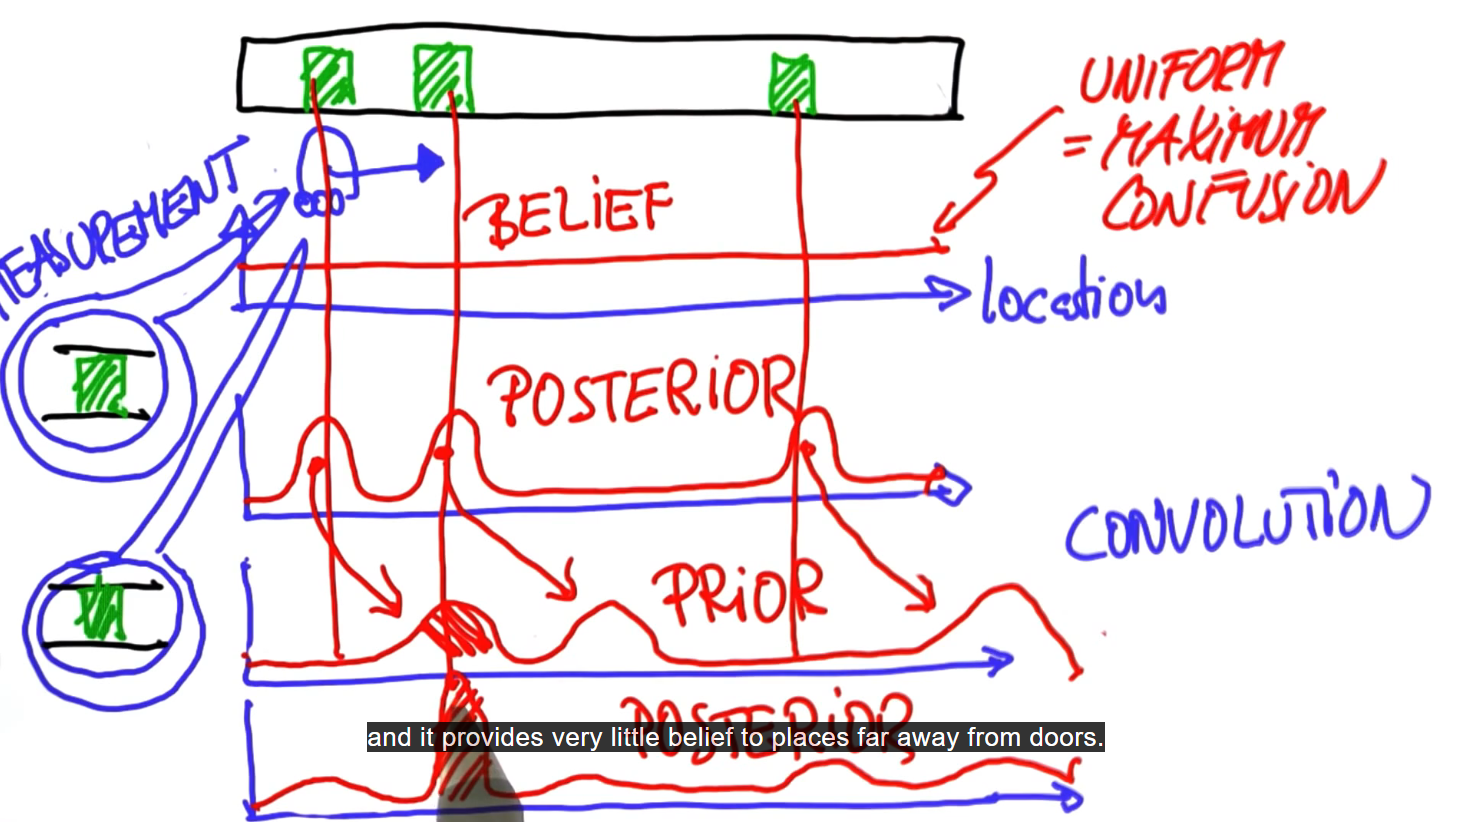 UNIFORM
= MAXIMUM
CONFUSION
MEASUREMENT
BELIEF
location
POSTERIOR
CONVOLUTION
PRIOR
POSTERIOR
and it provides very little belief to places far away from doors.